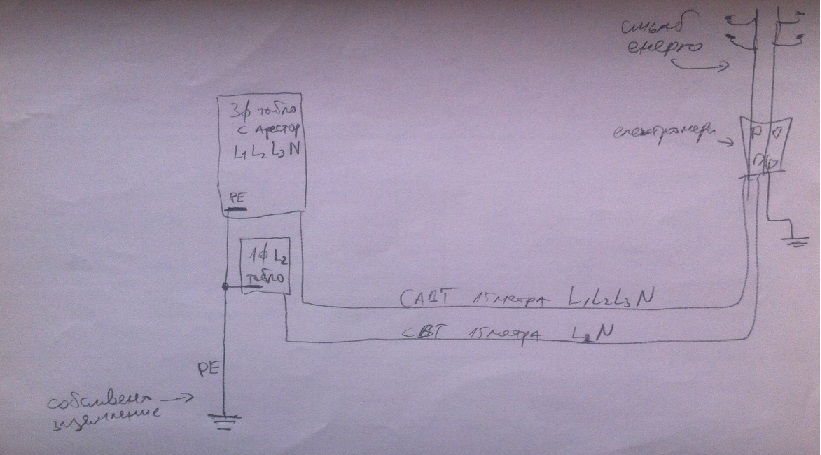 стълб
енерго
електромери
3ф табло
с арестор
L1 L2 L3 N
PE
1ф L2
табло
САВТ 15 метра L1L2L3N
СВТ 15 метра L2N
PE
собствена
заземление